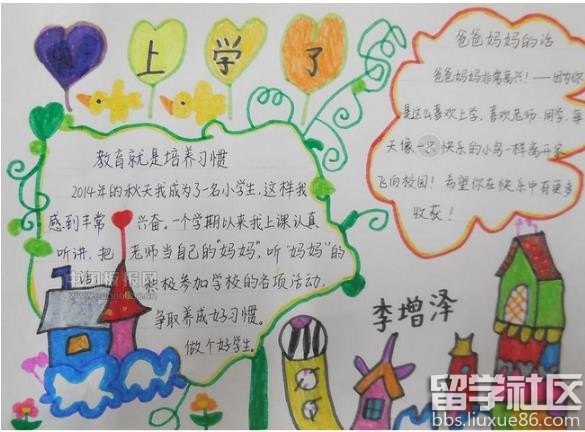 上学了
教育就是培养习惯
2014年的秋天我成为了一名小学生,这样我
感到非常 兴奋。一个学期以来我上课认真
听讲,把 老师当自己的"妈妈",听"妈妈"的
话, 积极参加学校的各项活动。
争取养成好习惯。
做个好学生。
爸爸妈妈的话
爸爸妈妈非常高兴!——因为你
是这么喜欢上学,喜欢老师、同学,每
天像一只快乐的小鸟一样离开家
飞向校园!希望你在快乐中有更多
收获!
李增泽
留学社区
bbs.liuxue86.com